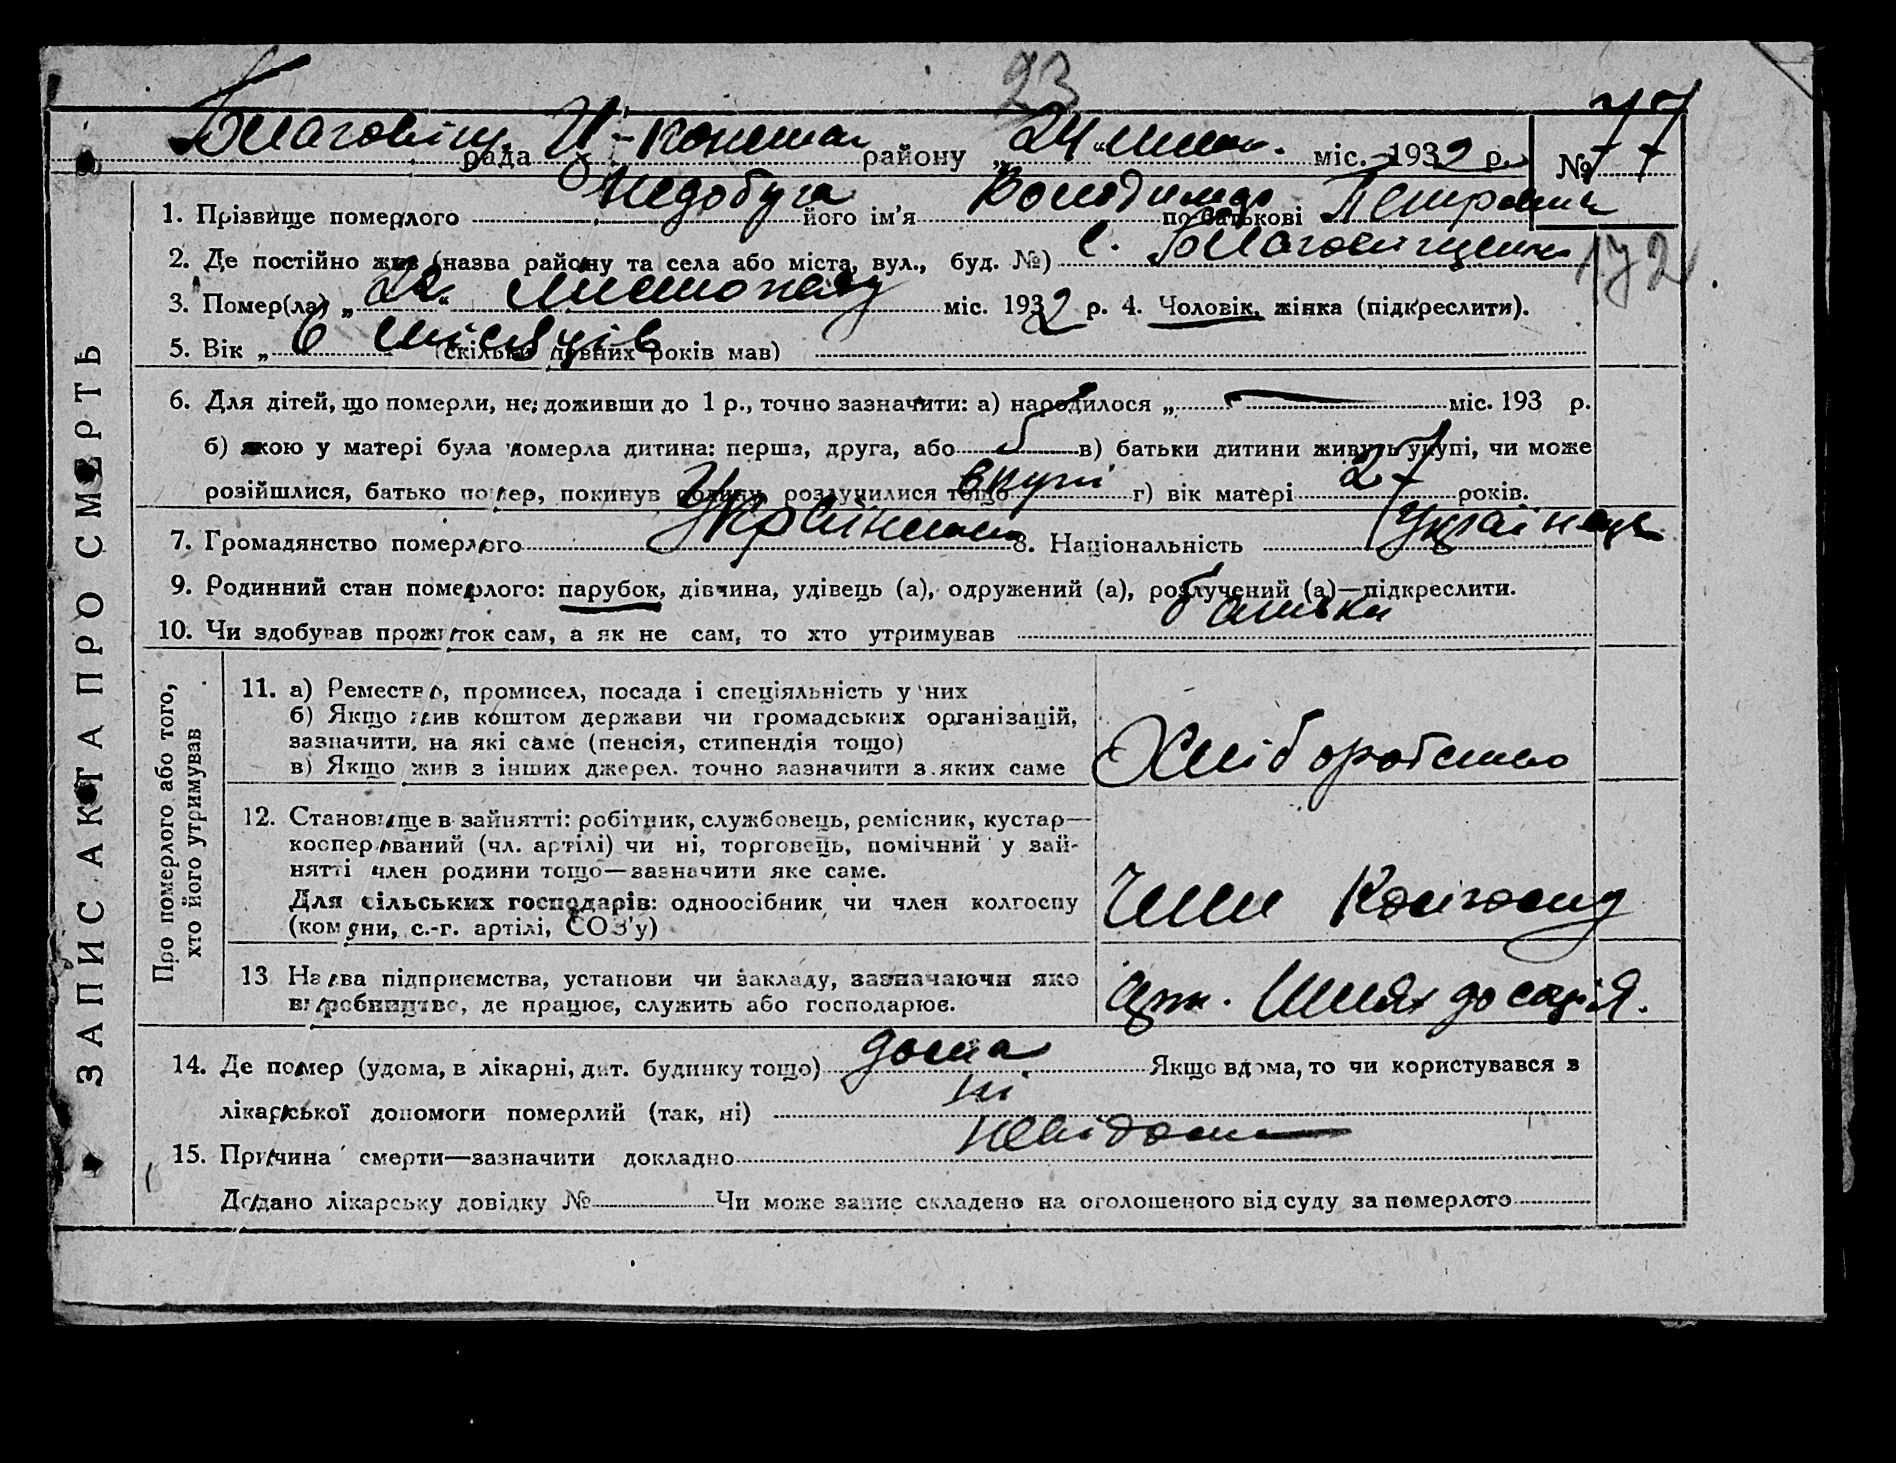 23
Благовіщ. рада району „24“ лист. міс. 1932 р. № 77
1. Прізвище померлого Недобуга його ім'я Володимир по батькові Петрович
2. Де постійно жив (назва району та села або міста, вул., буд. №) с. Благовіщенка
172
3. Помер(ла) „22“ листопаду міс. 1932 р. 4. Чоловік, жінка (підкреслити).
5. Вік „6 місяців (скільки повних років мав)
6. Для дітей, що померли, не доживши до 1 р., точно зазначити: а) народилося „ — міс. 193 р.
б) якою у матері була померла дитина: перша, друга, або 5 в) батьки дитини живуть укупі, чи може
розійшлися, батько помер, покинув родину, розлучилися тощо вкупі г) вік матері 27 років.
7. Громадянство померлого 8. Національність Українець
9. Родинний стан померлого: парубок, дівчина, удівець (а), одружений (а), розлучений (а)—підкреслити.
10. Чи здобував прожиток сам, а як не сам, то хто утримував батьки
ЗАПИС АКТА ПРО СМЕРТЬ
Про померлого або того,
хто його утримував
11. а) Ремество, промисел, посада і спеціяльність у них
б) Якщо жив коштом держави чи громадських організацій,
зазначити, на які саме (пенсія, стипендія тощо)
в) Якщо жив з інших джерел. точно зазначити з яких саме
Хліборобство
12. Становище в зайнятті: робітник, службовець, ремісник, кустар—
кооперований (чл. артілі) чи ні, торговець, помічний у зай-
нятті член родини тощо—зазначити яке саме.
Для сільських господарів: одноосібник чи член колгоспу
(комуни, с.-г. артілі, СОЗ'у)
Член Колгоспу
13 Назва підприємства, установи чи закладу, зазначаючи яке
виробництво, де працює, служить або господарює.
арт. Шлях до соція.
14. Де помер (удома, в лікарні, дит. будинку тощо) дома Якщо вдома, то чи користувався з
лікарської допомоги померлий (так, ні) ні
15. Причина смерти—зазначити докладно невідома
Додано лікарську довідку № Чи може запис складено на оголошеного від суду за померлого